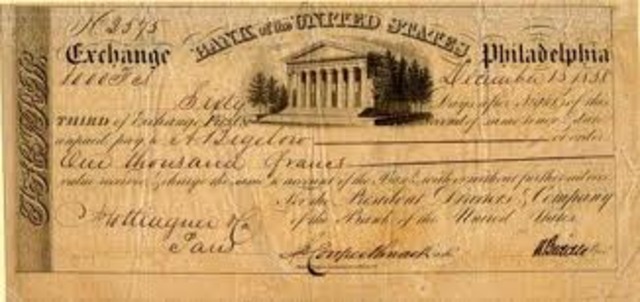 No 2595
BANK of the UNITED STATES,
Exchange Philadelphia
1000 Fcs December 15 1838
Sixty Days after Sight of this
THIRD of Exchange FIRST & Second of same tenor & date
unpaid pay to A Bigelow or order
One thousand francs
value received & charge the same to account of the Bank with or without further advice
For the President Directors & Company
of the Bank of the United States
Hottinguer & Co
Paris
N Biddle
THIRD.